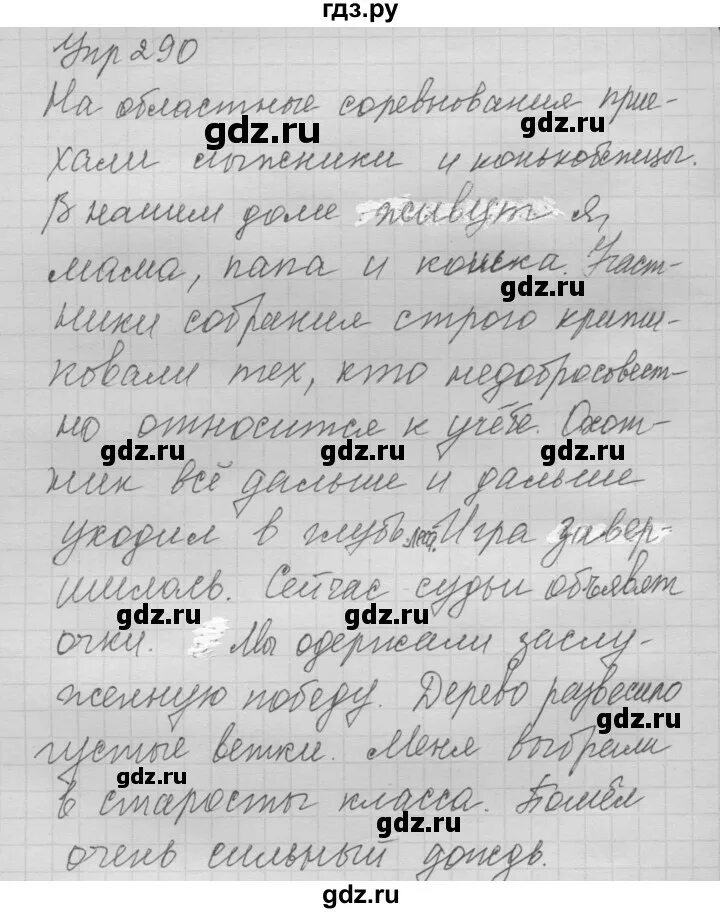 гдз.ру
Упр 290
На областные соревнования прие-
gdz.ru gdz.ru
хали лыжники и конькобежцы.
В нашем доме живут я,
мама, папа и кошка. Участ-
gdz.ru
ники собрания строго крити-
ковали тех, кто недобросовест-
но относится к учёбе. Охот-
gdz.ru gdz.ru
ник всё дальше и дальше
уходил в глубь леса. Игра завер-
gdz.ru
шилась. Сейчас судьи объявят
gdz.ru gdz.ru
очки. Мы одержали заслу-
женную победу. Дерево развесило
gdz.ru
густые ветки. Меня выбрали
gdz.ru
в старосты класса. Пошёл
gdz.ru
очень сильный дождь.
gdz.ru